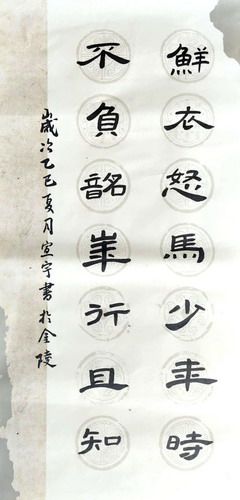 鮮衣怒馬少年時
不負韶華行且知
歲次乙巳夏月宣宇書於金陵